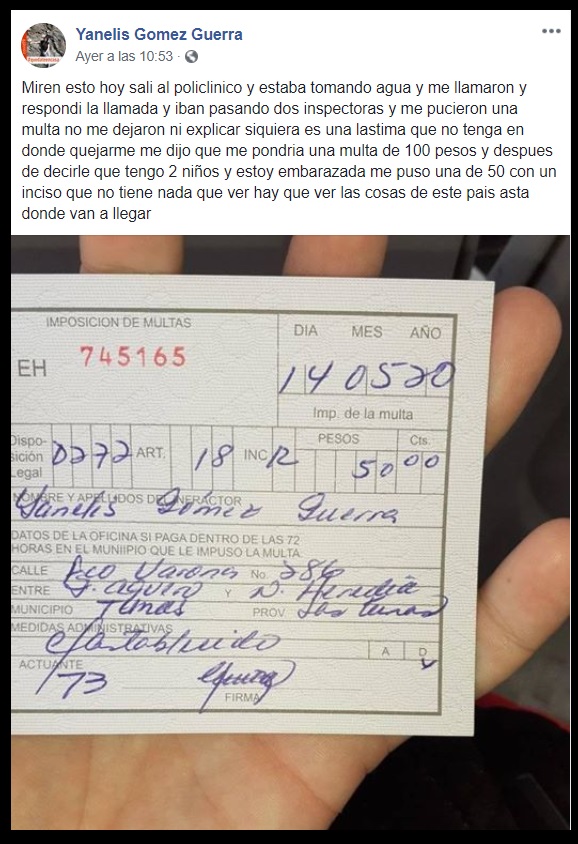 Yanelis Gomez Guerra
Ayer a las 10:53 ·
Miren esto hoy sali al policlinico y estaba tomando agua y me llamaron y
respondi la llamada y iban pasando dos inspectoras y me pucieron una
multa no me dejaron ni explicar siquiera es una lastima que no tenga en
donde quejarme me dijo que me pondria una multa de 100 pesos y despues
de decirle que tengo 2 niños y estoy embarazada me puso una de 50 con un
inciso que no tiene nada que ver hay que ver las cosas de este pais asta
donde van a llegar
IMPOSICION DE MULTAS
DIA MES AÑO
EH 745165
14 05 20
Imp. de la multa
PESOS Cts.
Dispo-
sición
Legal
D272 ART. 18 INC. 50 00
NOMBRE Y APELLIDOS DEL INFRACTOR
Yanelis Gómez Guerra
DATOS DE LA OFICINA SI PAGA DENTRO DE LAS 72
HORAS EN EL MUNIIPIO QUE LE IMPUSO LA MULTA
CALLE Fco Varona No. 286
ENTRE Y N. Heredia
MUNICIPIO Tunas PROV Las Tunas
MEDIDAS ADMINISTRATIVAS
A D
ACTUANTE
173
FIRMA